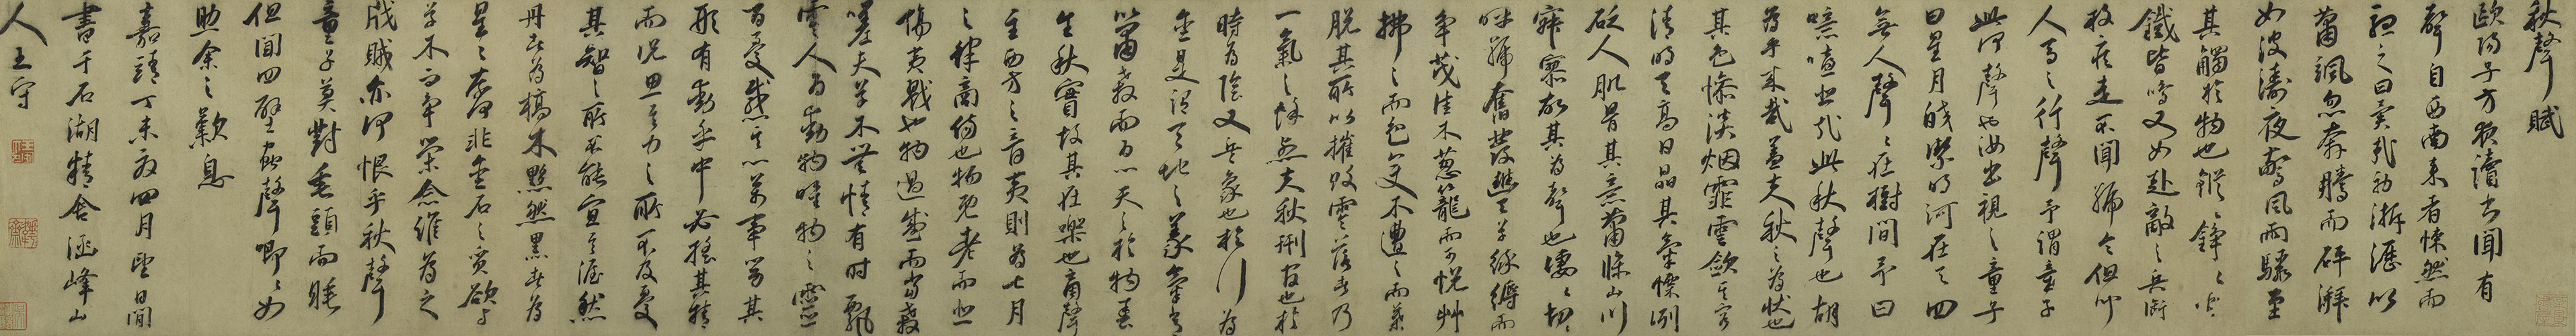 秋聲賦
歐陽子方夜讀書聞有
聲自西南來者悚然而
聽之曰異哉初淅瀝以
蕭颯忽奔騰而砰湃
如波濤夜驚風雨驟至
其觸於物也鏦鏦錚錚金
鐵皆鳴又如赴敵之兵銜
枚疾走不聞號令但聞
人馬之行聲予謂童子
此何聲也汝出視之童子
曰星月皎潔明河在天四
無人聲聲在樹間予曰
噫嘻悲哉此秋聲也胡
為乎來哉蓋夫秋之為狀也
其色慘淡烟霏雲歛其容
清明天高日晶其氣慄冽
砭人肌骨其意蕭條山川
寂寥故其為聲也凄凄切切
呼號奮發豐草綠縟而
爭茂佳木葱籠而可悅艸
拂之而色變木遭之而葉
脫其所以摧敗零落者乃
一氣之餘烈夫秋刑官也於
時為陰又兵象也於行為
金是謂天地之義氣常
以肅殺而為心天之於物春
生秋實故其在樂也商聲
主西方之音夷則為七月
之律商傷也物既老而悲
傷夷戮也物過盛而當殺
嗟夫草木無情有时飄
零人為動物唯物之靈
百憂感其心萬事勞其
形有動乎中必搖其精
而況思其力之所不及憂
其智之所不能宜其渥然
丹者為槁木黟然黑者為
星星奈何非金石之質欲與
草木而爭榮念誰為之
戕賊亦何恨乎秋聲
童子莫對垂頭而睡
但聞四壁蟲聲唧唧如
助余之歎息
嘉靖丁未歲四月望日閒
書于石湖精舍涵峰山
人王守